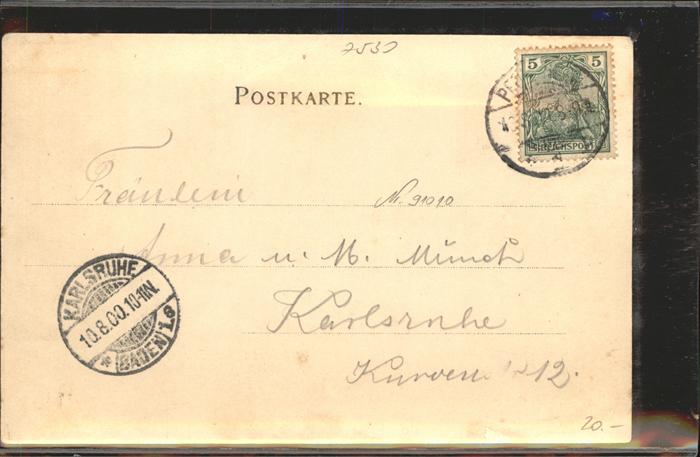 7530
POSTKARTE.
5 5
REICHSPOST
Fräulein
Nr. 91010
Anna u. M. Münch
Karlsruhe
Kurvenstr 12.
KARLSRUHE
10.8.00.10-11N.
* (BADEN) 1.e
20.-